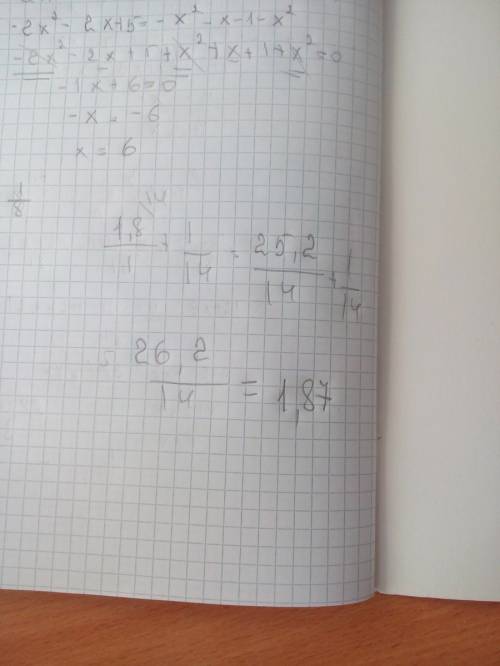 -2x² - 2x+5 = -x² - x - 1 - x²
-2x² - 2x + 5 + x² + x + 1 + x² = 0
-1x + 6 = 0
-x = -6
x = 6
1/8
1,8/1 + 1/14 = 25,2/14 + 1/14
= 26,2/14 = 1,87